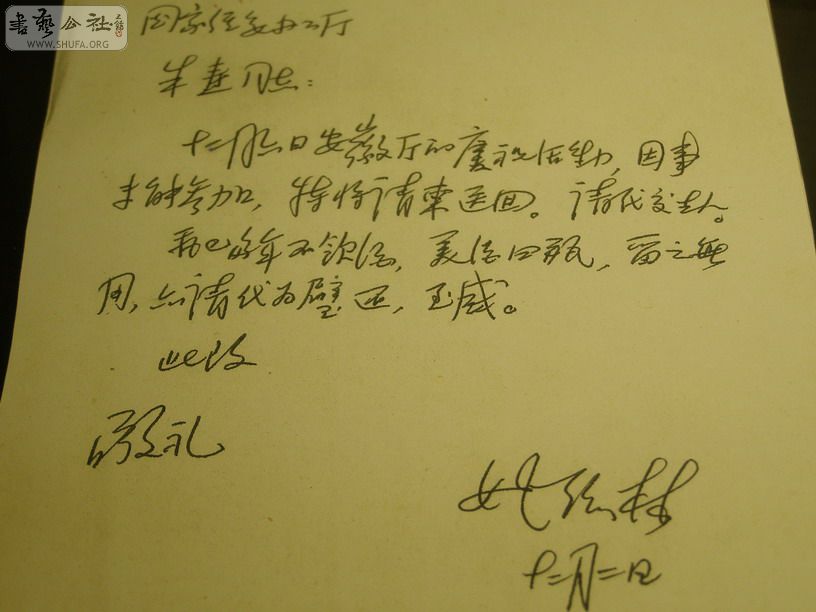 書藝公社
WWW.SHUFA.ORG
国家经委办公厅
朱 同志:
十二月六日安徽厅的庆祝活动,因事
未能参加,特将请柬送回。请代交主人。
我已多年不饮酒,美酒四瓶,留之无
用,亦请代为璧还,至感。
此致
敬礼
姚依林
十二月二日